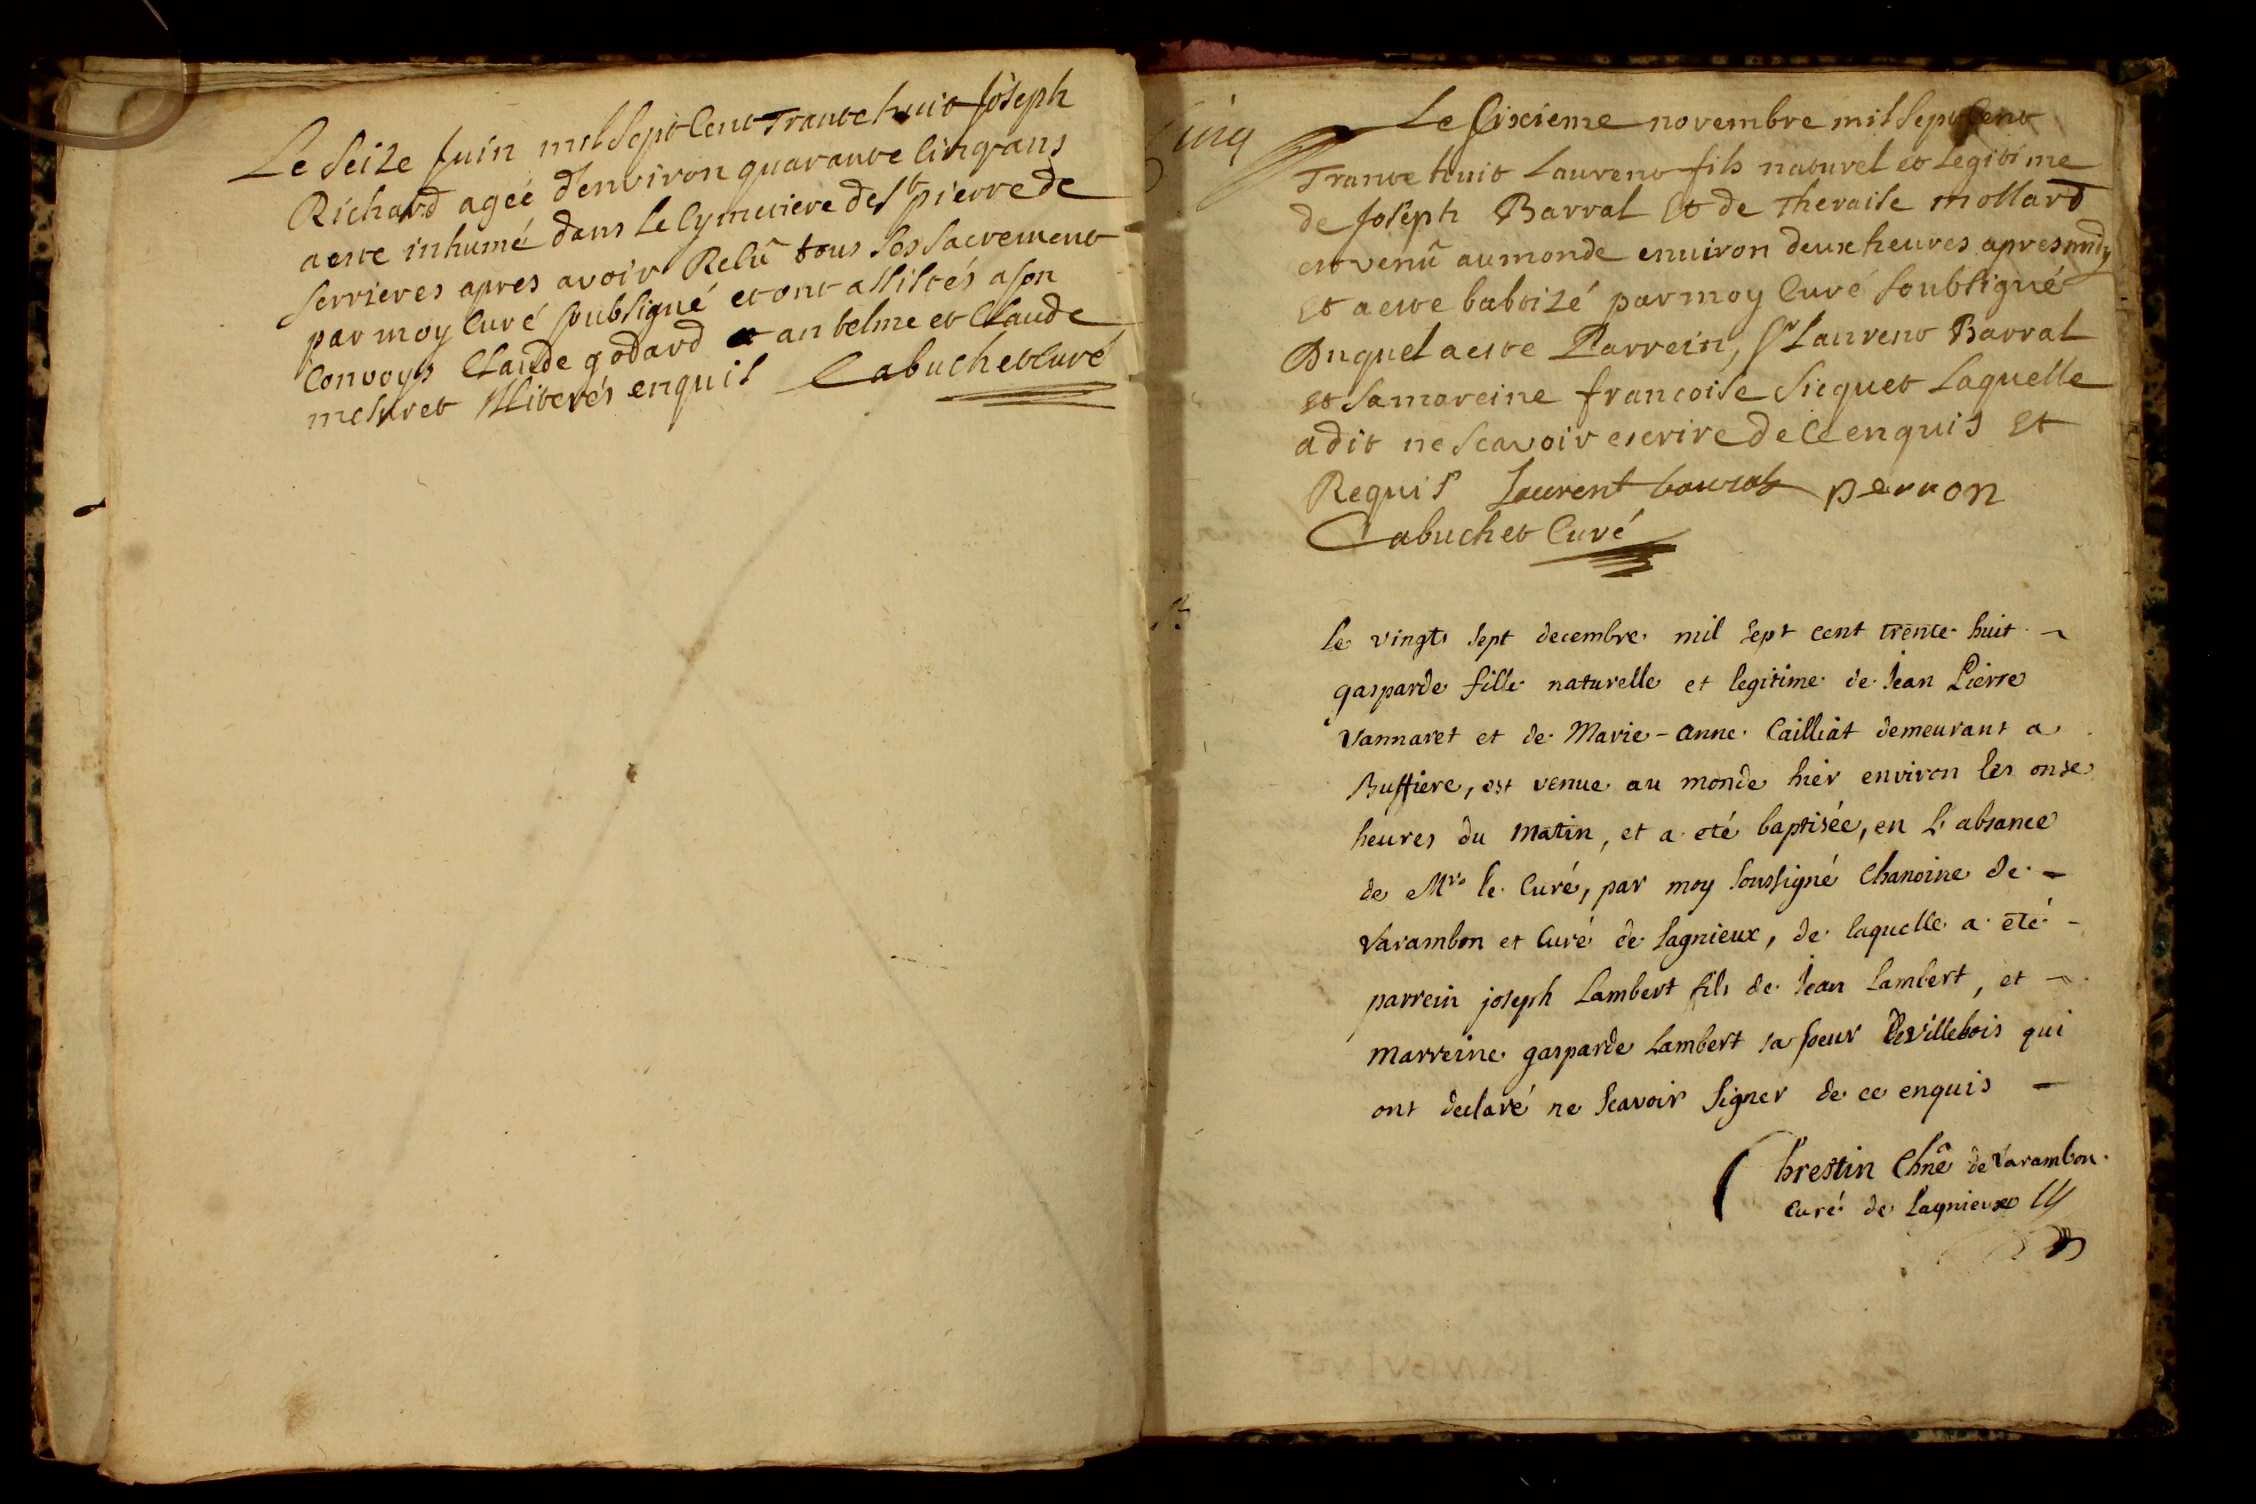 Le seize Juin mil sept cent trante huit Joseph
Richard ageé d'environ quarante cinq ans
a este inhumé dans le Cymetiere de st pierre de
serrieres apres avoir Relû tous ses sacrement
par moy Curé soubsigné et ont assistés a son
Convoys Claude godard et anbelme et Claude
mesuret illiterés enquis Cabuchet curé
cinq
Le sixieme novembre mil sept cent
Trante huit Laurent fils naturel et Legitime
de Joseph Barral et de Theraise mollard
est venû au monde environ deux heures apres midy
et a este babtizé par moy Curé soubsigné
Duquel a este Parrein, sr Laurent Barral
et sa mareine francoise sicquet Laquelle
a dit ne scavoir escrire de ce enquis et
Requis Laurent barral perron
Cabuchet Curé
le vingt sept decembre mil sept cent trente huit
gasparde fille naturelle et legitime de Jean Pierre
Vannaret et de Marie-Anne Cailliat demeurant a
Buffiere, est venue au monde hier environ les onze
heures du matin, et a eté baptisée, en l'absance
de Mr. le Curé, par moy soussigné Chanoine de -
Varambon et Curé de Lagnieux, de laquelle a eté -
parrein joseph Lambert fils de Jean Lambert, et -
marreine gasparde Lambert sa soeur de villebois qui
ont declaré ne scavoir signer de ce enquis -
Chrestin Chne de Varambon.
Curé de Lagnieux